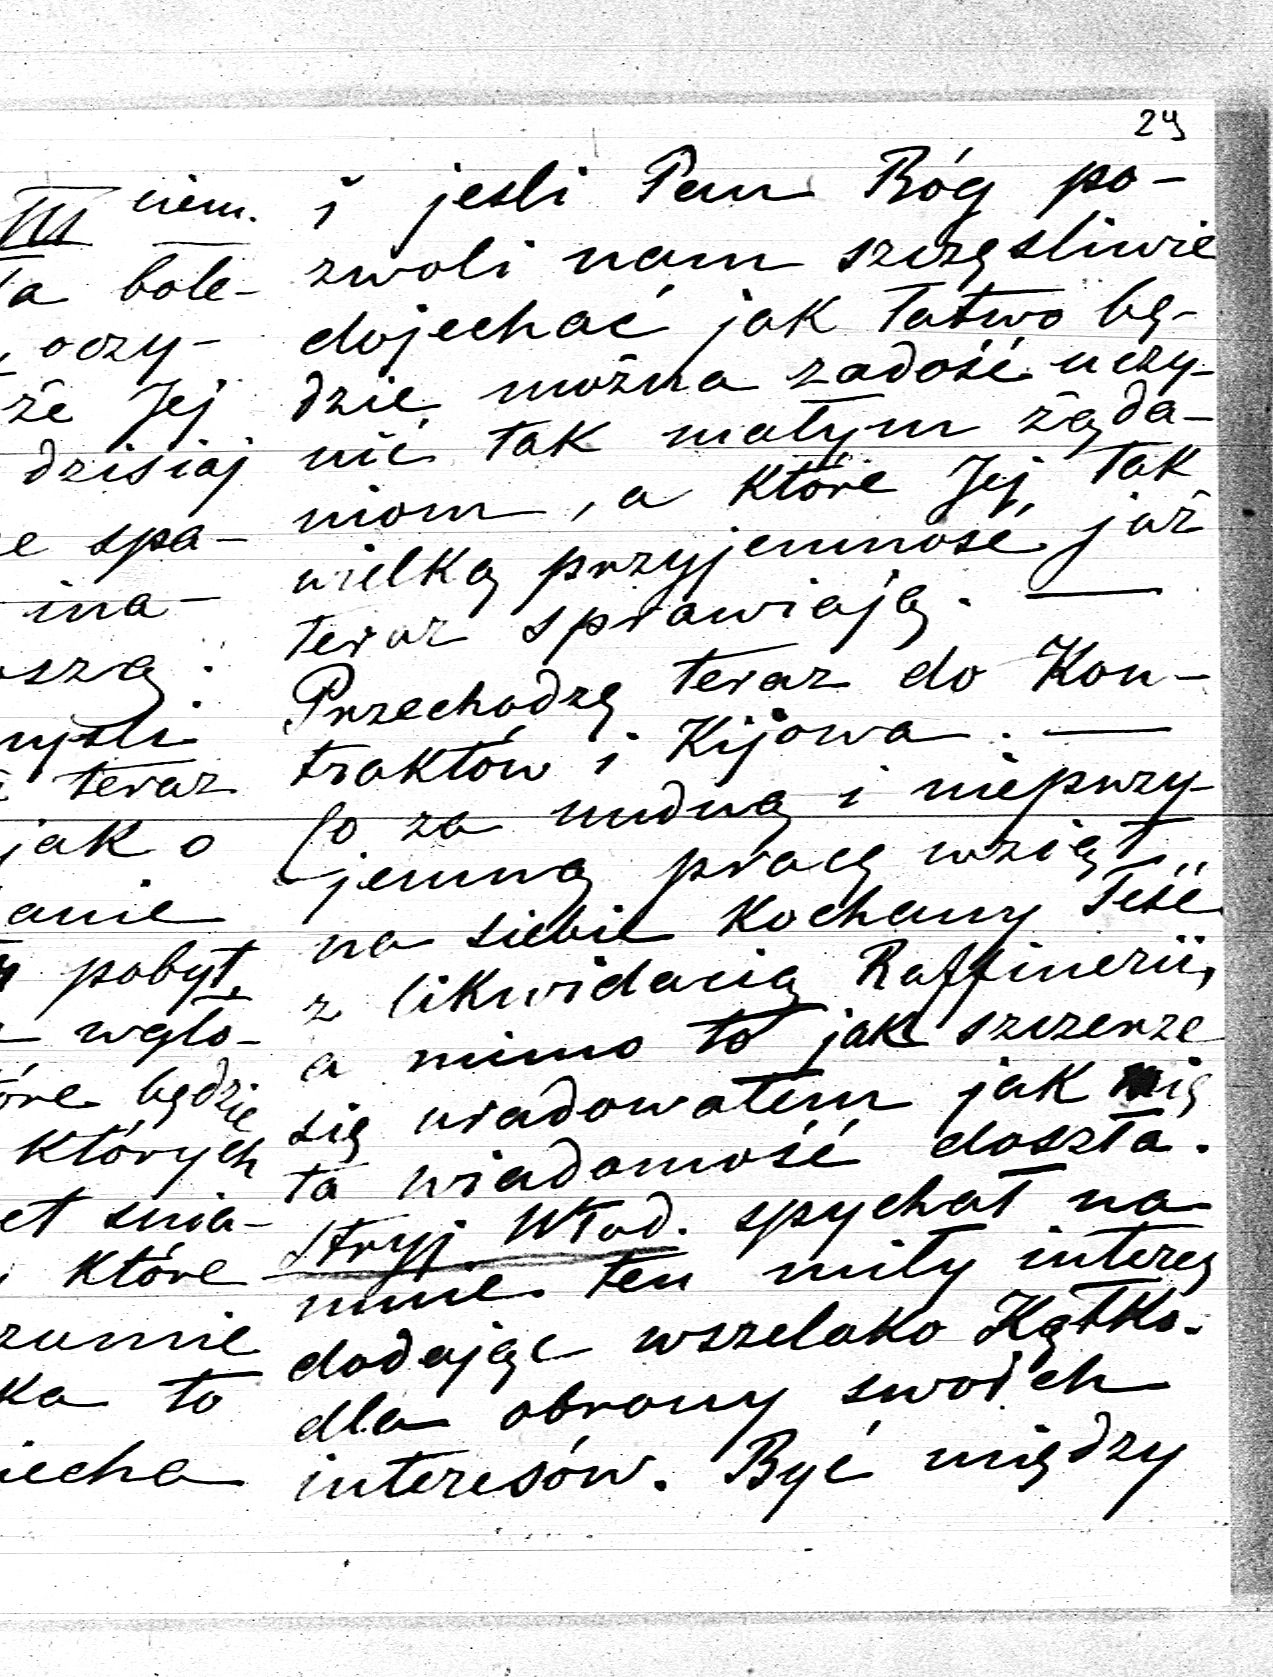 29
niem.
bole-
oczy-
że Jej
dzisiaj
spa-
ina-
myśli
teraz
jak o
anie
pobyt,
wgło-
będzie
których
snia-
które
to
i jesli Pan Bóg po-
zwoli nam szczęsliwie
dojechać jak łatwo bę-
dzie można zadość uczy-
nić tak małym żąda-
niom, a które Jej tak
wielką przyjemność już
teraz sprawiają. —
Przechodzę teraz do Kon-
traktów i Kijowa. —
Co za nudną i nieprzy-
jemną pracę wziął
na siebie Kochany Teść
z likwidacią Raffinerii,
a mimo to jak szczerze
się uradowałem jak mię
ta wiadomość doszła.
Stryj Wład. spychał na
mnie ten miły interes
dodając wszelako Kątko.
dla obrony swoich
interesów. Być między